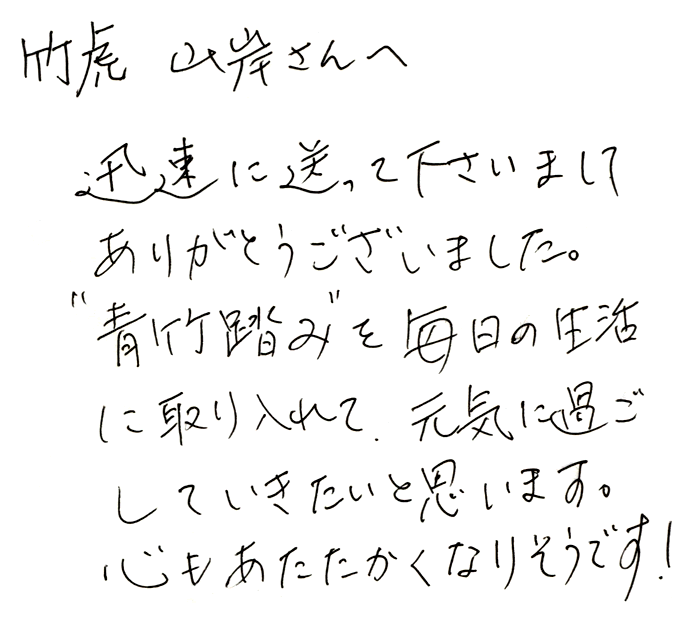 竹虎 山岸さんへ
迅速に送って下さいまして
ありがとうございました。
"青竹踏み"を毎日の生活
に取り入れて、元気に過ご
していきたいと思います。
心もあたたかくなりそうです!